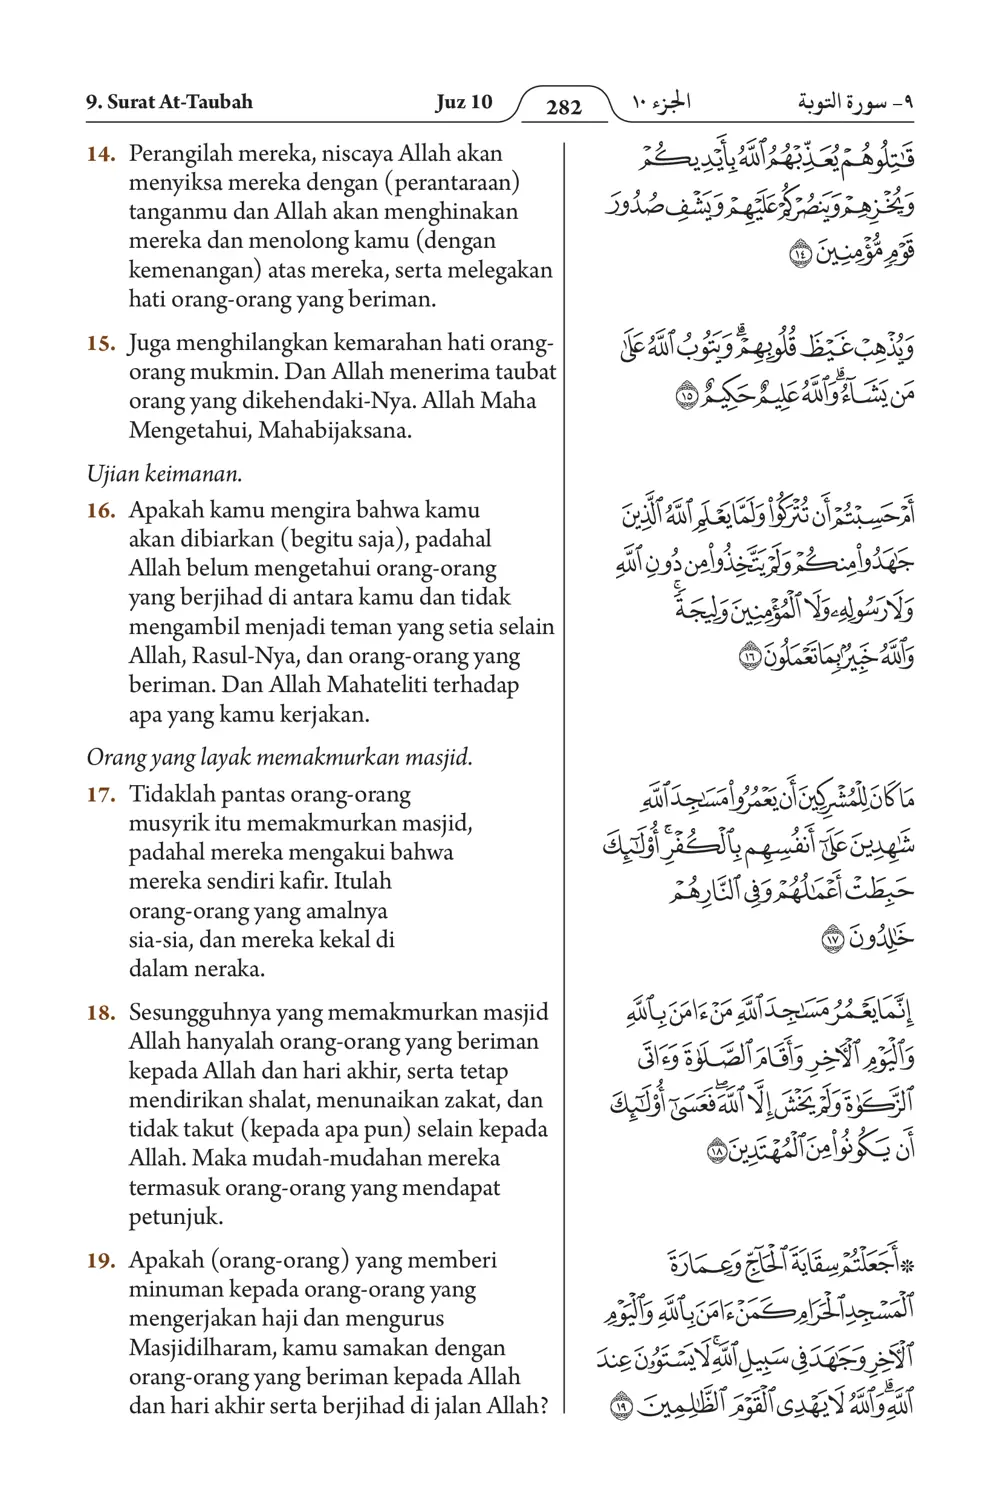 9. Surat At-Taubah Juz 10 282 الجزء ١٠ ٩- سورة التوبة
14. Perangilah mereka, niscaya Allah akan
menyiksa mereka dengan (perantaraan)
tanganmu dan Allah akan menghinakan
mereka dan menolong kamu (dengan
kemenangan) atas mereka, serta melegakan
hati orang-orang yang beriman.
15. Juga menghilangkan kemarahan hati orang-
orang mukmin. Dan Allah menerima taubat
orang yang dikehendaki-Nya. Allah Maha
Mengetahui, Mahabijaksana.
Ujian keimanan.
16. Apakah kamu mengira bahwa kamu
akan dibiarkan (begitu saja), padahal
Allah belum mengetahui orang-orang
yang berjihad di antara kamu dan tidak
mengambil menjadi teman yang setia selain
Allah, Rasul-Nya, dan orang-orang yang
beriman. Dan Allah Mahateliti terhadap
apa yang kamu kerjakan.
Orang yang layak memakmurkan masjid.
17. Tidaklah pantas orang-orang
musyrik itu memakmurkan masjid,
padahal mereka mengakui bahwa
mereka sendiri kafir. Itulah
orang-orang yang amalnya
sia-sia, dan mereka kekal di
dalam neraka.
18. Sesungguhnya yang memakmurkan masjid
Allah hanyalah orang-orang yang beriman
kepada Allah dan hari akhir, serta tetap
mendirikan shalat, menunaikan zakat, dan
tidak takut (kepada apa pun) selain kepada
Allah. Maka mudah-mudahan mereka
termasuk orang-orang yang mendapat
petunjuk.
19. Apakah (orang-orang) yang memberi
minuman kepada orang-orang yang
mengerjakan haji dan mengurus
Masjidilharam, kamu samakan dengan
orang-orang yang beriman kepada Allah
dan hari akhir serta berjihad di jalan Allah?
قَٰتِلُوهُمْ يُعَذِّبْهُمُ ٱللَّهُ بِأَيْدِيكُمْ
وَيُخْزِهِمْ وَيَنصُرْكُمْ عَلَيْهِمْ وَيَشْفِ صُدُورَ
قَوْمٍ مُّؤْمِنِينَ ١٤
وَيُذْهِبْ غَيْظَ قُلُوبِهِمْ ۗ وَيَتُوبُ ٱللَّهُ عَلَىٰ
مَن يَشَآءُ ۗ وَٱللَّهُ عَلِيمٌ حَكِيمٌ ١٥
أَمْ حَسِبْتُمْ أَن تُتْرَكُوا۟ وَلَمَّا يَعْلَمِ ٱللَّهُ ٱلَّذِينَ
جَٰهَدُوا۟ مِنكُمْ وَلَمْ يَتَّخِذُوا۟ مِن دُونِ ٱللَّهِ
وَلَا رَسُولِهِۦ وَلَا ٱلْمُؤْمِنِينَ وَلِيجَةً ۚ
وَٱللَّهُ خَبِيرٌۢ بِمَا تَعْمَلُونَ ١٦
مَا كَانَ لِلْمُشْرِكِينَ أَن يَعْمُرُوا۟ مَسَٰجِدَ ٱللَّهِ
شَٰهِدِينَ عَلَىٰٓ أَنفُسِهِم بِٱلْكُفْرِ ۚ أُو۟لَٰٓئِكَ
حَبِطَتْ أَعْمَٰلُهُمْ وَفِى ٱلنَّارِ هُمْ
خَٰلِدُونَ ١٧
إِنَّمَا يَعْمُرُ مَسَٰجِدَ ٱللَّهِ مَنْ ءَامَنَ بِٱللَّهِ
وَٱلْيَوْمِ ٱلْءَاخِرِ وَأَقَامَ ٱلصَّلَوٰةَ وَءَاتَى
ٱلزَّكَوٰةَ وَلَمْ يَخْشَ إِلَّا ٱللَّهَ ۖ فَعَسَىٰٓ أُو۟لَٰٓئِكَ
أَن يَكُونُوا۟ مِنَ ٱلْمُهْتَدِينَ ١٨
۞ أَجَعَلْتُمْ سِقَايَةَ ٱلْحَآجِّ وَعِمَارَةَ
ٱلْمَسْجِدِ ٱلْحَرَامِ كَمَنْ ءَامَنَ بِٱللَّهِ وَٱلْيَوْمِ
ٱلْءَاخِرِ وَجَٰهَدَ فِى سَبِيلِ ٱللَّهِ ۚ لَا يَسْتَوُۥنَ عِندَ
ٱللَّهِ ۗ وَٱللَّهُ لَا يَهْدِى ٱلْقَوْمَ ٱلظَّٰلِمِينَ ١٩